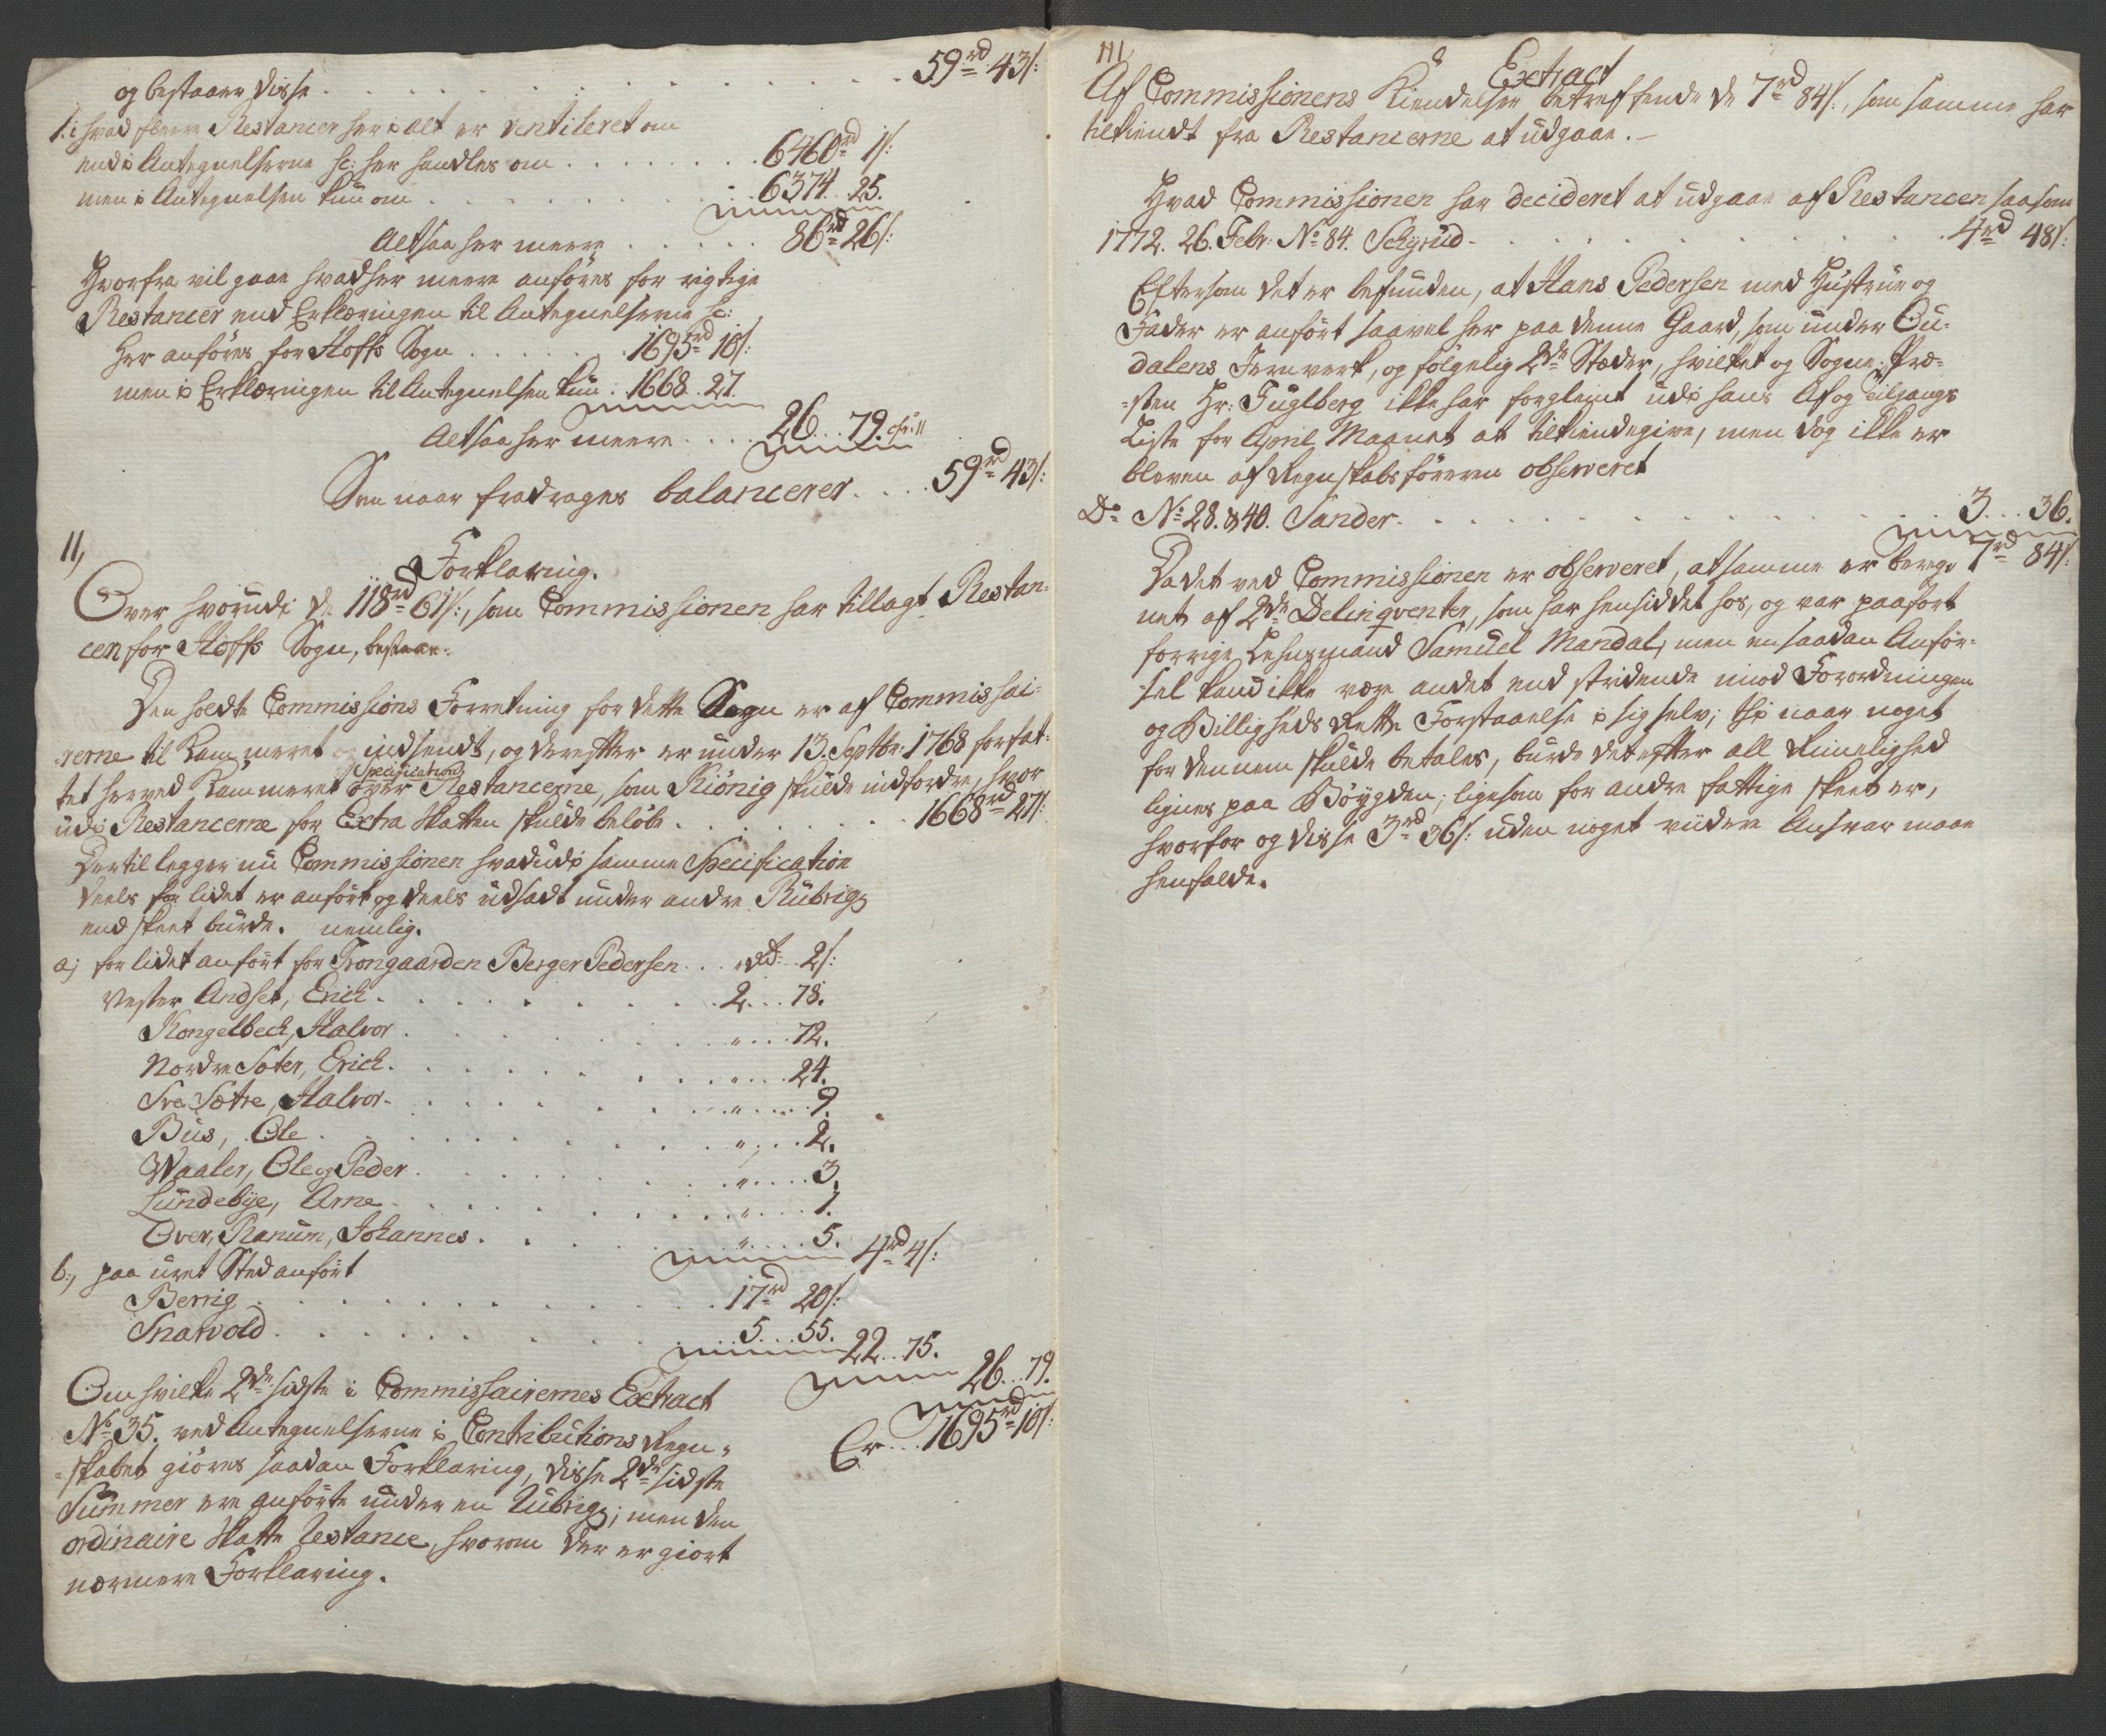 og bestaaer disse . . . . . . . . . . 59rd 43/:
1: i hvad fleere Restancer her i alt er ventileret om
end i Antegnelserne sc: her handles om . . . . . . 6460rd 1/:
men i Antegnelsen kun om . . . . . . 6374. 25.
Altsaa her meere . . . . . 86rd 26/:
Hvorfra vil gaae hvad her meere anføres for rigtige
Restancer end Erklæringen til Antegnelserne sc:
Her anføres for Hoffs Sogn . . . . . . 1695rd 10/:
men i Erklæringen til Antegnelsen kun . 1668. 27.
Altsaa her meere . . . . 26. . . 79. cfr: 11
Som naar fradrages balancerer . . . . 59rd 43/:
11,
Forklaring.
Over hvorudi de 118rd 61/:, som Commissionen har tillagt Restan-
cen for Hoffs Sogn, bestaaer.
Den holdte Commissions Forretning for dette Sogn er af Commissai-
rerne til Kammeret indsendt, og derefter er under 13. Septbr: 1768 forfat-
tet herved Kammeret Specification over Restancerne, som Kiönig skulde indfordre, hvor
udi Restancerne for Extra Skatten skulde beløbe . . . . . . . 1668rd 27/:
Dertil legger nu Commissionen hvad udi samme Specification
deels for lidet er anført og deels udsadt under andre Rubriqs
end skeet burde. nemlig.
a; for lidet anført for Frongaarden Berger Pedersen . . . " rd 2/:
Vester Andset, Erich . . . . . . . . 2. . . 78.
Kongelbech, Halvor . . . . . . . . " . . . 72.
Nordre Soter, Erich . . . . . . . . " . . . 24.
Sre Sætre, Halvor . . . . . . . . " . . . . 9.
Bus, Ole . . . . . . . . . " . . . 2.
Waaler, Ole og Peder . . . . . . . " . . . . 3.
Lundebye, Arne . . . . . . . . " . . . . 1.
Over, Ranum, Johannes . . . . . . . " . . . . 5.
4rd 4/:
b:, paa uret Sted anført
Berrig . . . . . . . . . . 17rd 20/:
Snarvold . . . . . . . . . 5. . . 55.
22. . 75.
26. . . 79.
Er. . . 1695rd 10/:
Om hvilke 2de sidste i Commissairernes Extract
No 35. ved Antegnelserne i Contributions Regn-
skabet giøres saadan Forklaring, disse 2de sidste
Summer ere anførte under en Rubriqs; men den
ordinaire Skatte Restance, hvorom der er giort
nærmere Forklaring.
111,
Extract
Af Commissionens Kiendelser betreffende de 7rd 84/:, som samme har
tilkiendt fra Restancerne at udgaae.
Hvad Commissionen har decideret at udgaae af Restancen saasom
1772. 26. Febr: No 84. Schyrud . . . . . . . . . . 4rd 48/:
Eftersom det er befunden, at Hans Pedersen med Hustrue og
Fader er anført saavel her paa denne Gaard, som under Ou-
dalens Jernverk, og følgelig 2de Stæder, hvilket og Sogne-Præ-
sten Hr: Fuglberg ikke har forglemt udi hans Af og Tilgangs
Liste for April Maanet at tilkiendegive, men dog ikke er
bleven af Regnskabsføreren observeret
Do No 28. & 40. Sander . . . . . . . . . . 3. . . 36.
7rd 84/:
Da det ved Commissionen er observeret, at samme er bereg-
net af 2de Delinqventer, som har hensiddet hos, og var paaført
forrige Lehnsmand Samuel Mandal, men en saadan Anfør-
sel kand ikke være andet end stridende imod Forordningen
og Billigheds Rette Forstaaelse i sig selv; thi naar noget
for dennem skulde betales, burde det efter all Rimelighed
lignes paa Bøygden; ligesom for andre fattige skeet er,
hvorfor og disse 3rd 36/: uden noget viidere Ansvar maae
henfalde.